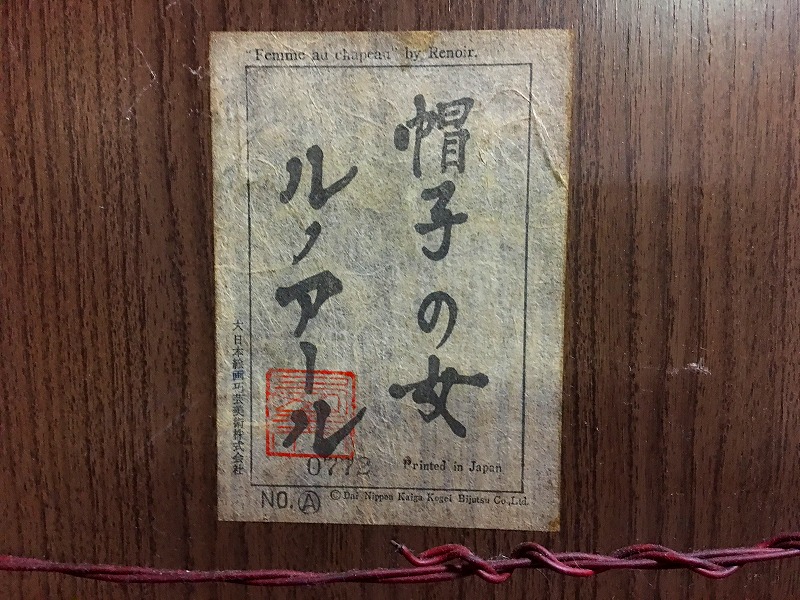 "Femme au chapeau" by Renoir.
帽子の女
ルノアール
大日本絵画巧芸美術株式会社
0772
Printed in Japan
NO. Ⓐ
© Dai Nippon Kaiga Kogei Bijutsu Co.,Ltd.